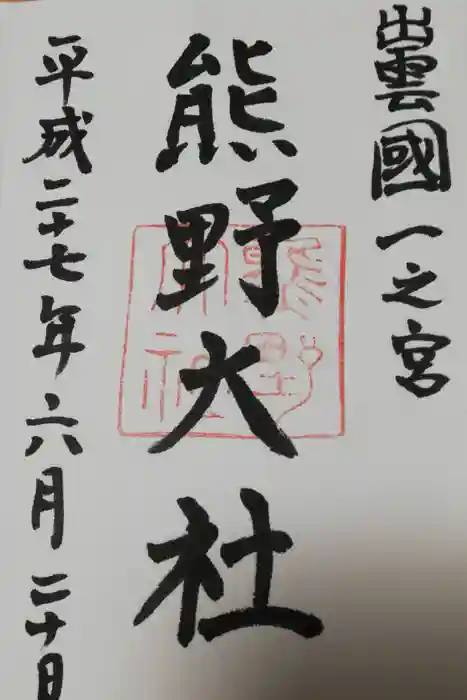 出雲國一之宮
熊野大社
熊野大社
平成二十七年六月二十日